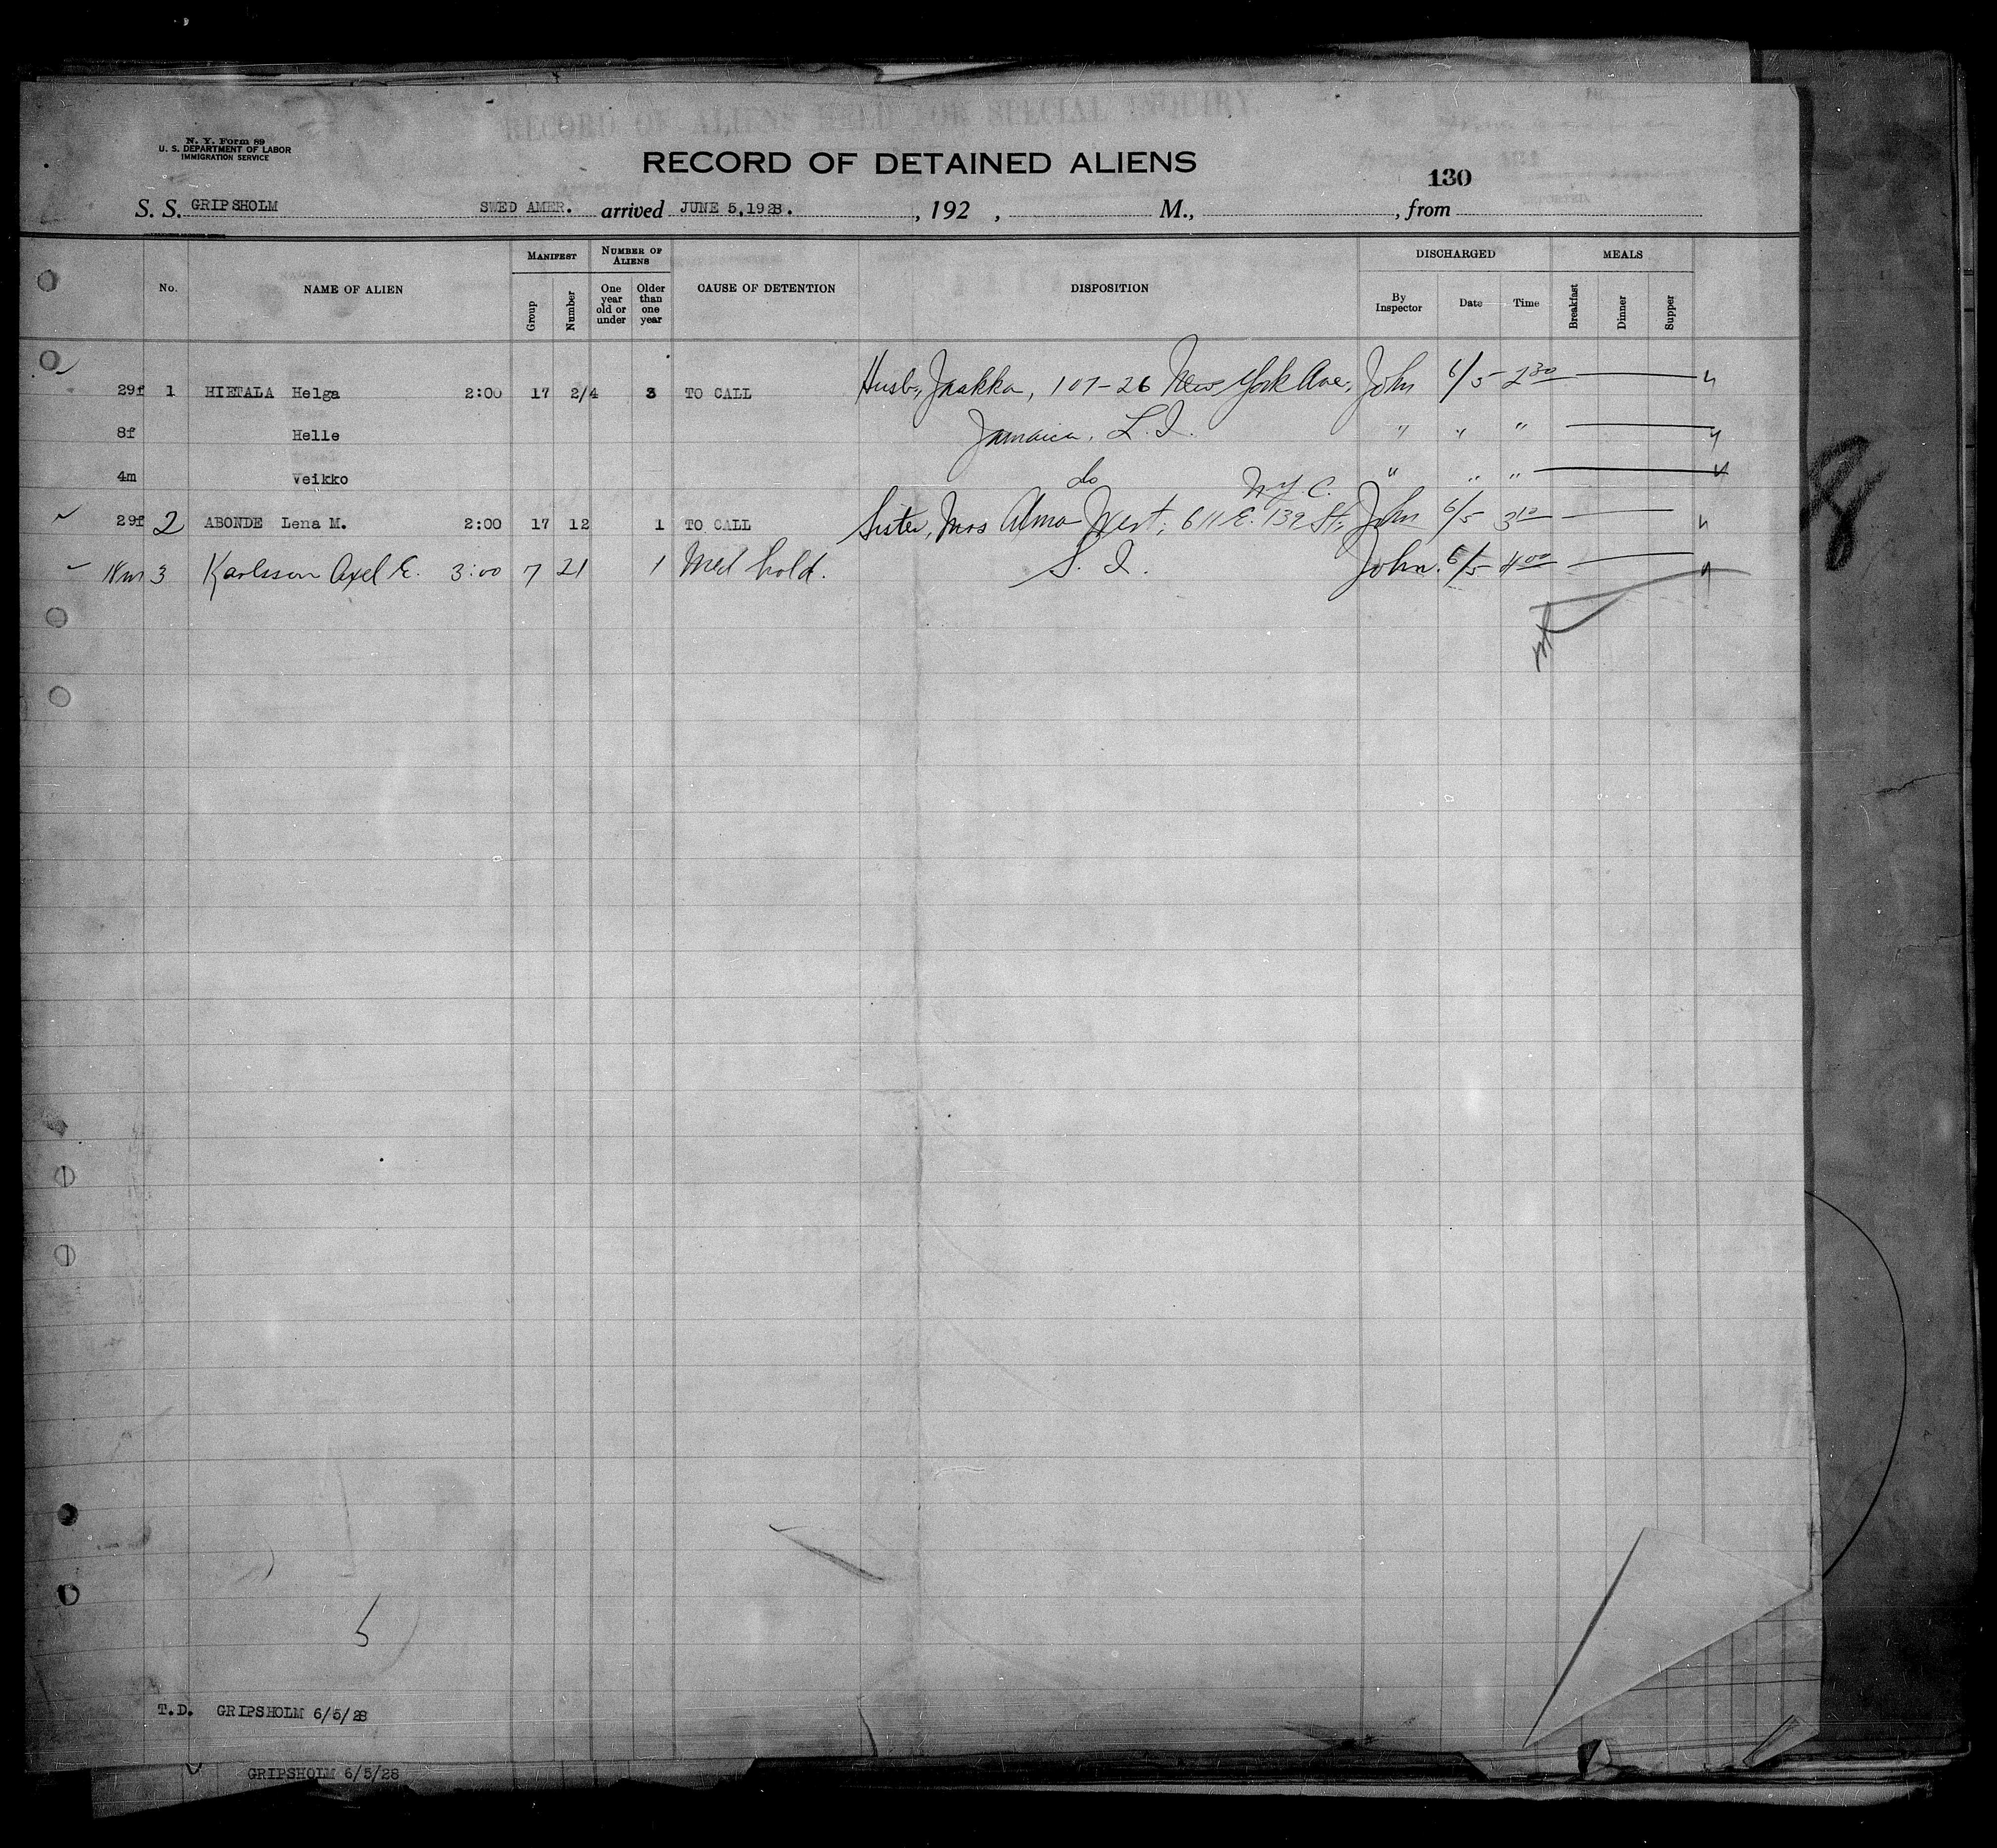 RECORD OF ALIENS HELD FOR SPECIAL INQUIRY.
N. Y. Form 89
U. S. DEPARTMENT OF LABOR
IMMIGRATION SERVICE
RECORD OF DETAINED ALIENS
130
S. S. GRIPSHOLM SWED AMER. arrived JUNE 5,1928. , 192 , M., , from
No. NAME OF ALIEN MANIFEST Group Number NUMBER OF ALIENS One year old or under Older than one year CAUSE OF DETENTION DISPOSITION DISCHARGED By Inspector Date Time MEALS Breakfast Dinner Supper
29f 1 HIETALA Helga 2:00 17 2/4 3 TO CALL Husb., Jaakka, 107-26 New York Ave, John 6/5 2 30
8f Helle Jamaica, L. I. " " "
4m Veikko do " " "
N.Y.C.
29f 2 ABONDE Lena M. 2:00 17 12 1 TO CALL Sister, Mrs Alma West, 611 E. 139 St; John 6/5 3 10
18m 3 Karlsson Axel E. 3:00 7 21 1 Med hold. S. I. John. 6/5 4 00
5
T.D. GRIPSHOLM 6/5/28
GRIPSHOLM 6/5/28